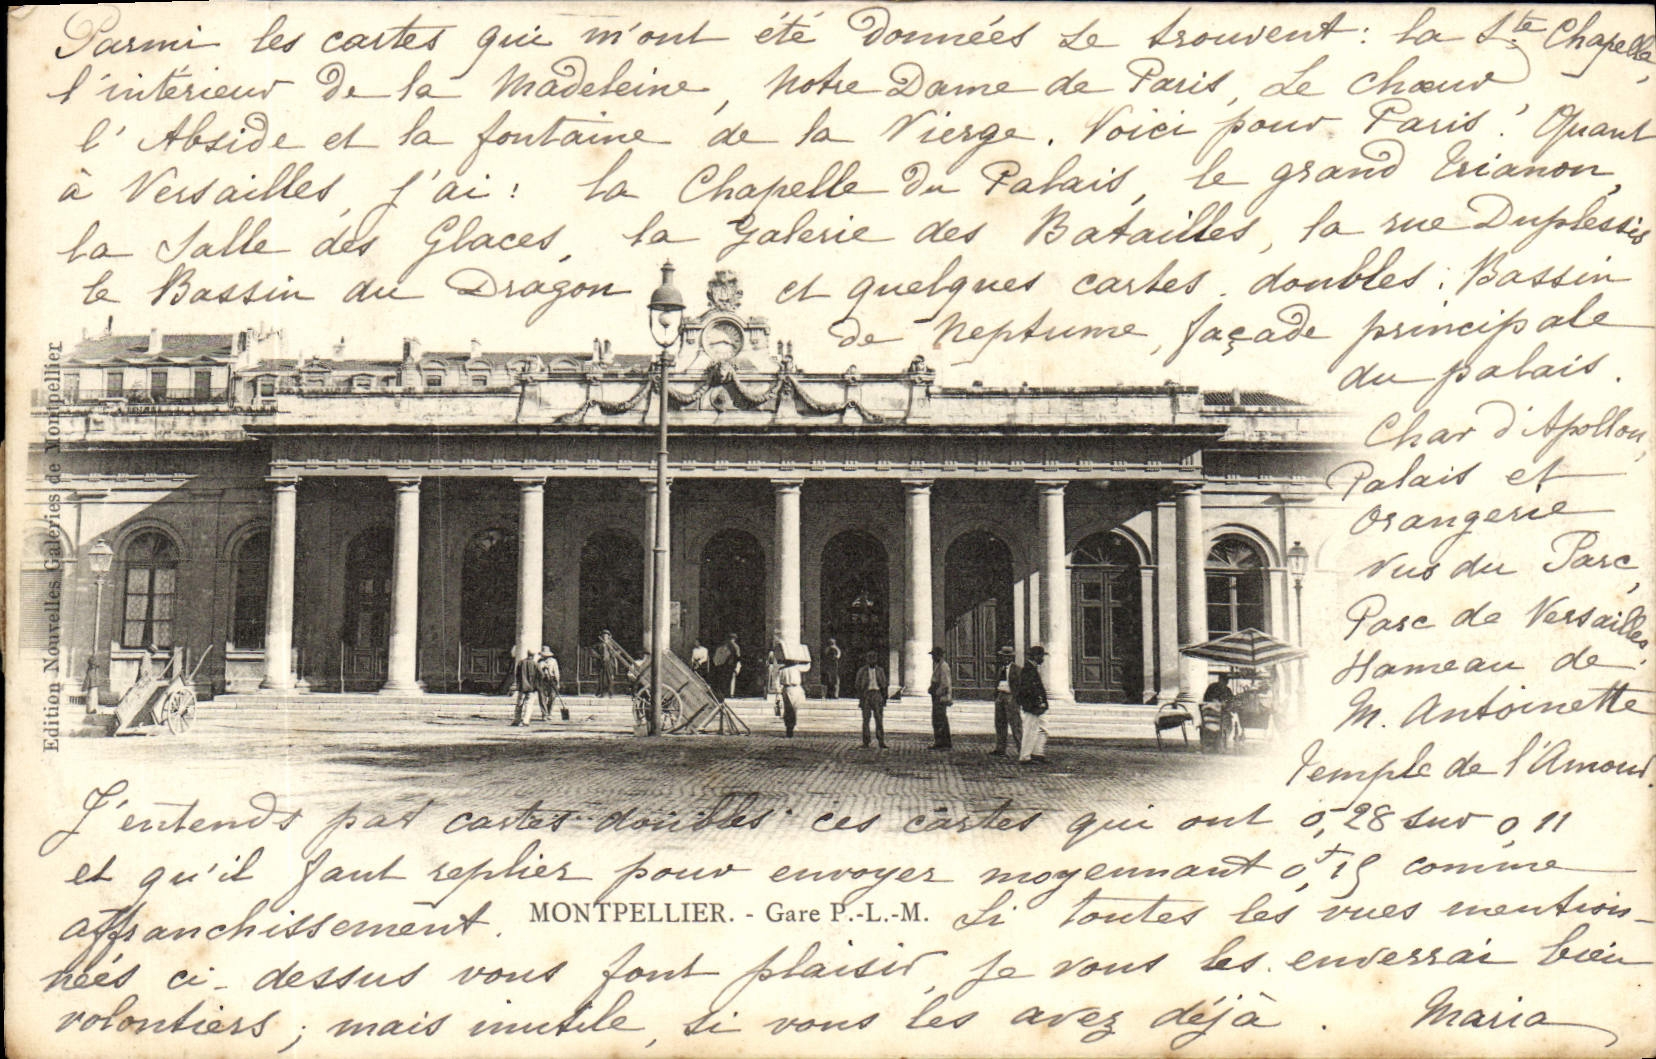 Parmi les cartes qui m'ont été données se trouvent : la Ste Chapelle,
l'intérieur de la Madeleine, Notre Dame de Paris, Le Chœur
l'Abside et la fontaine de la Vierge. Voici pour Paris ! Quant
à Versailles, j'ai : la Chapelle du Palais, le grand Trianon,
la Salle des Glaces, la Galerie des Batailles, la rue Duplessis
le Bassin du Dragon et quelques cartes doubles : Bassin
de Neptume, façade principale
du palais.
Char d'Apollon,
Palais et
Orangerie
vus du Parc,
Parc de Versailles,
Hameau de
M. Antoinette
Temple de l'Amour.
J'entends par cartes doubles ces cartes qui ont 0,28 sur 0,11
et qu'il faut replier pour envoyer moyennant 0f15 comme
affranchissement. Si toutes les vues mention-
nées ci-dessus vous font plaisir, je vous les enverrai bien
volontiers ; mais inutile, si vous les avez déjà. Maria
MONTPELLIER. - Gare P.-L.-M.
Edition Nouvelles Galeries de Montpellier